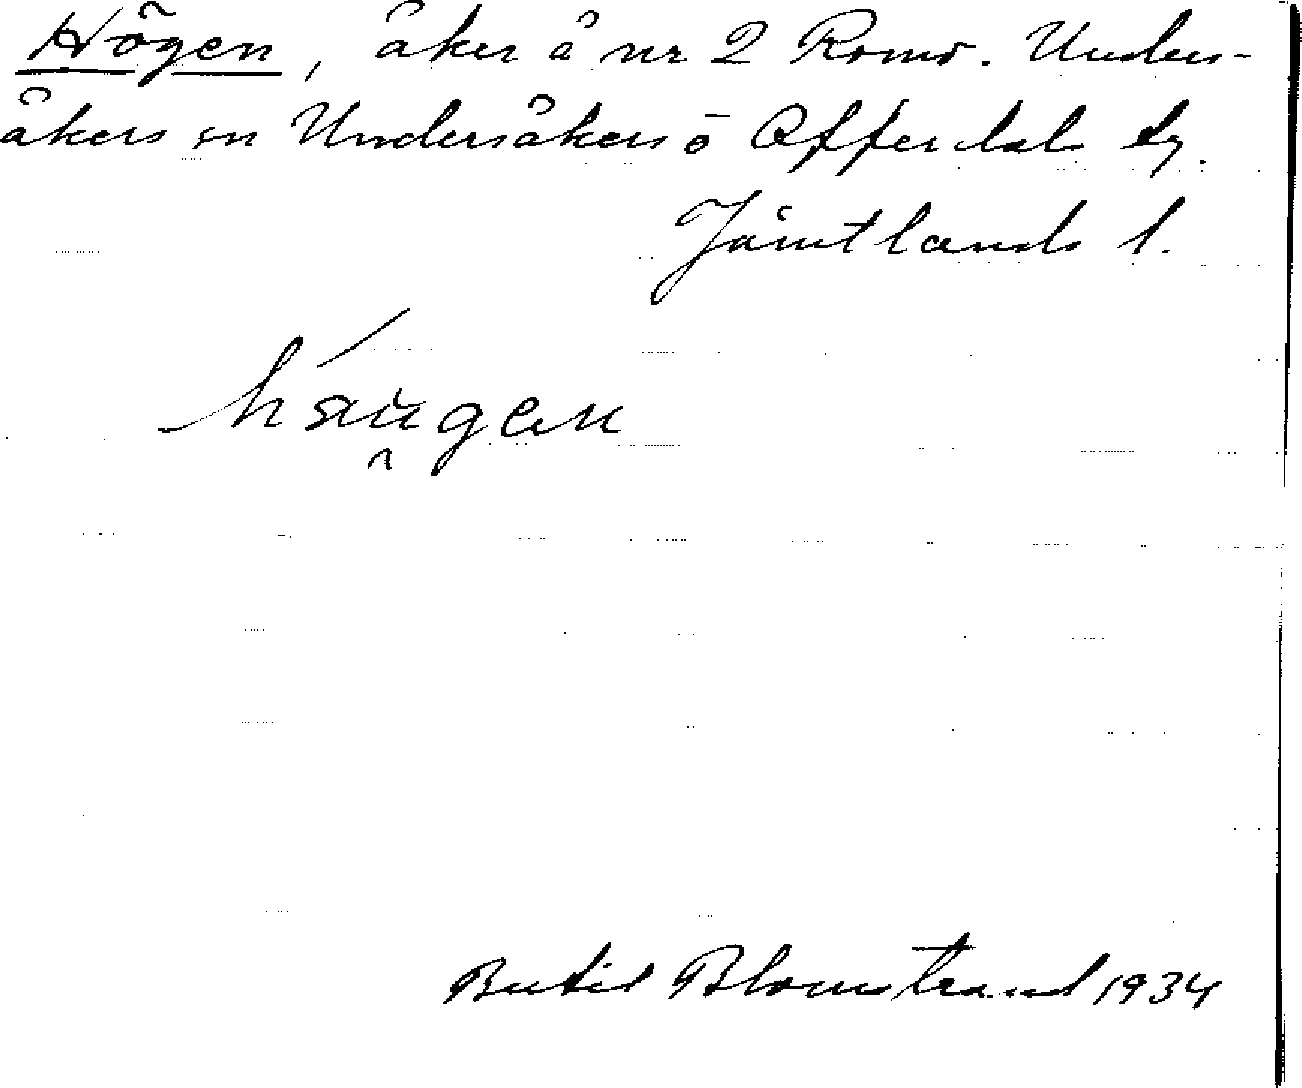 Högen, åker å nr 2 Romo. Under-
åkers sn Undersåkers o Offerdals tg.
Jämtlands l.
háugen
Bertil Blomstrand 1934